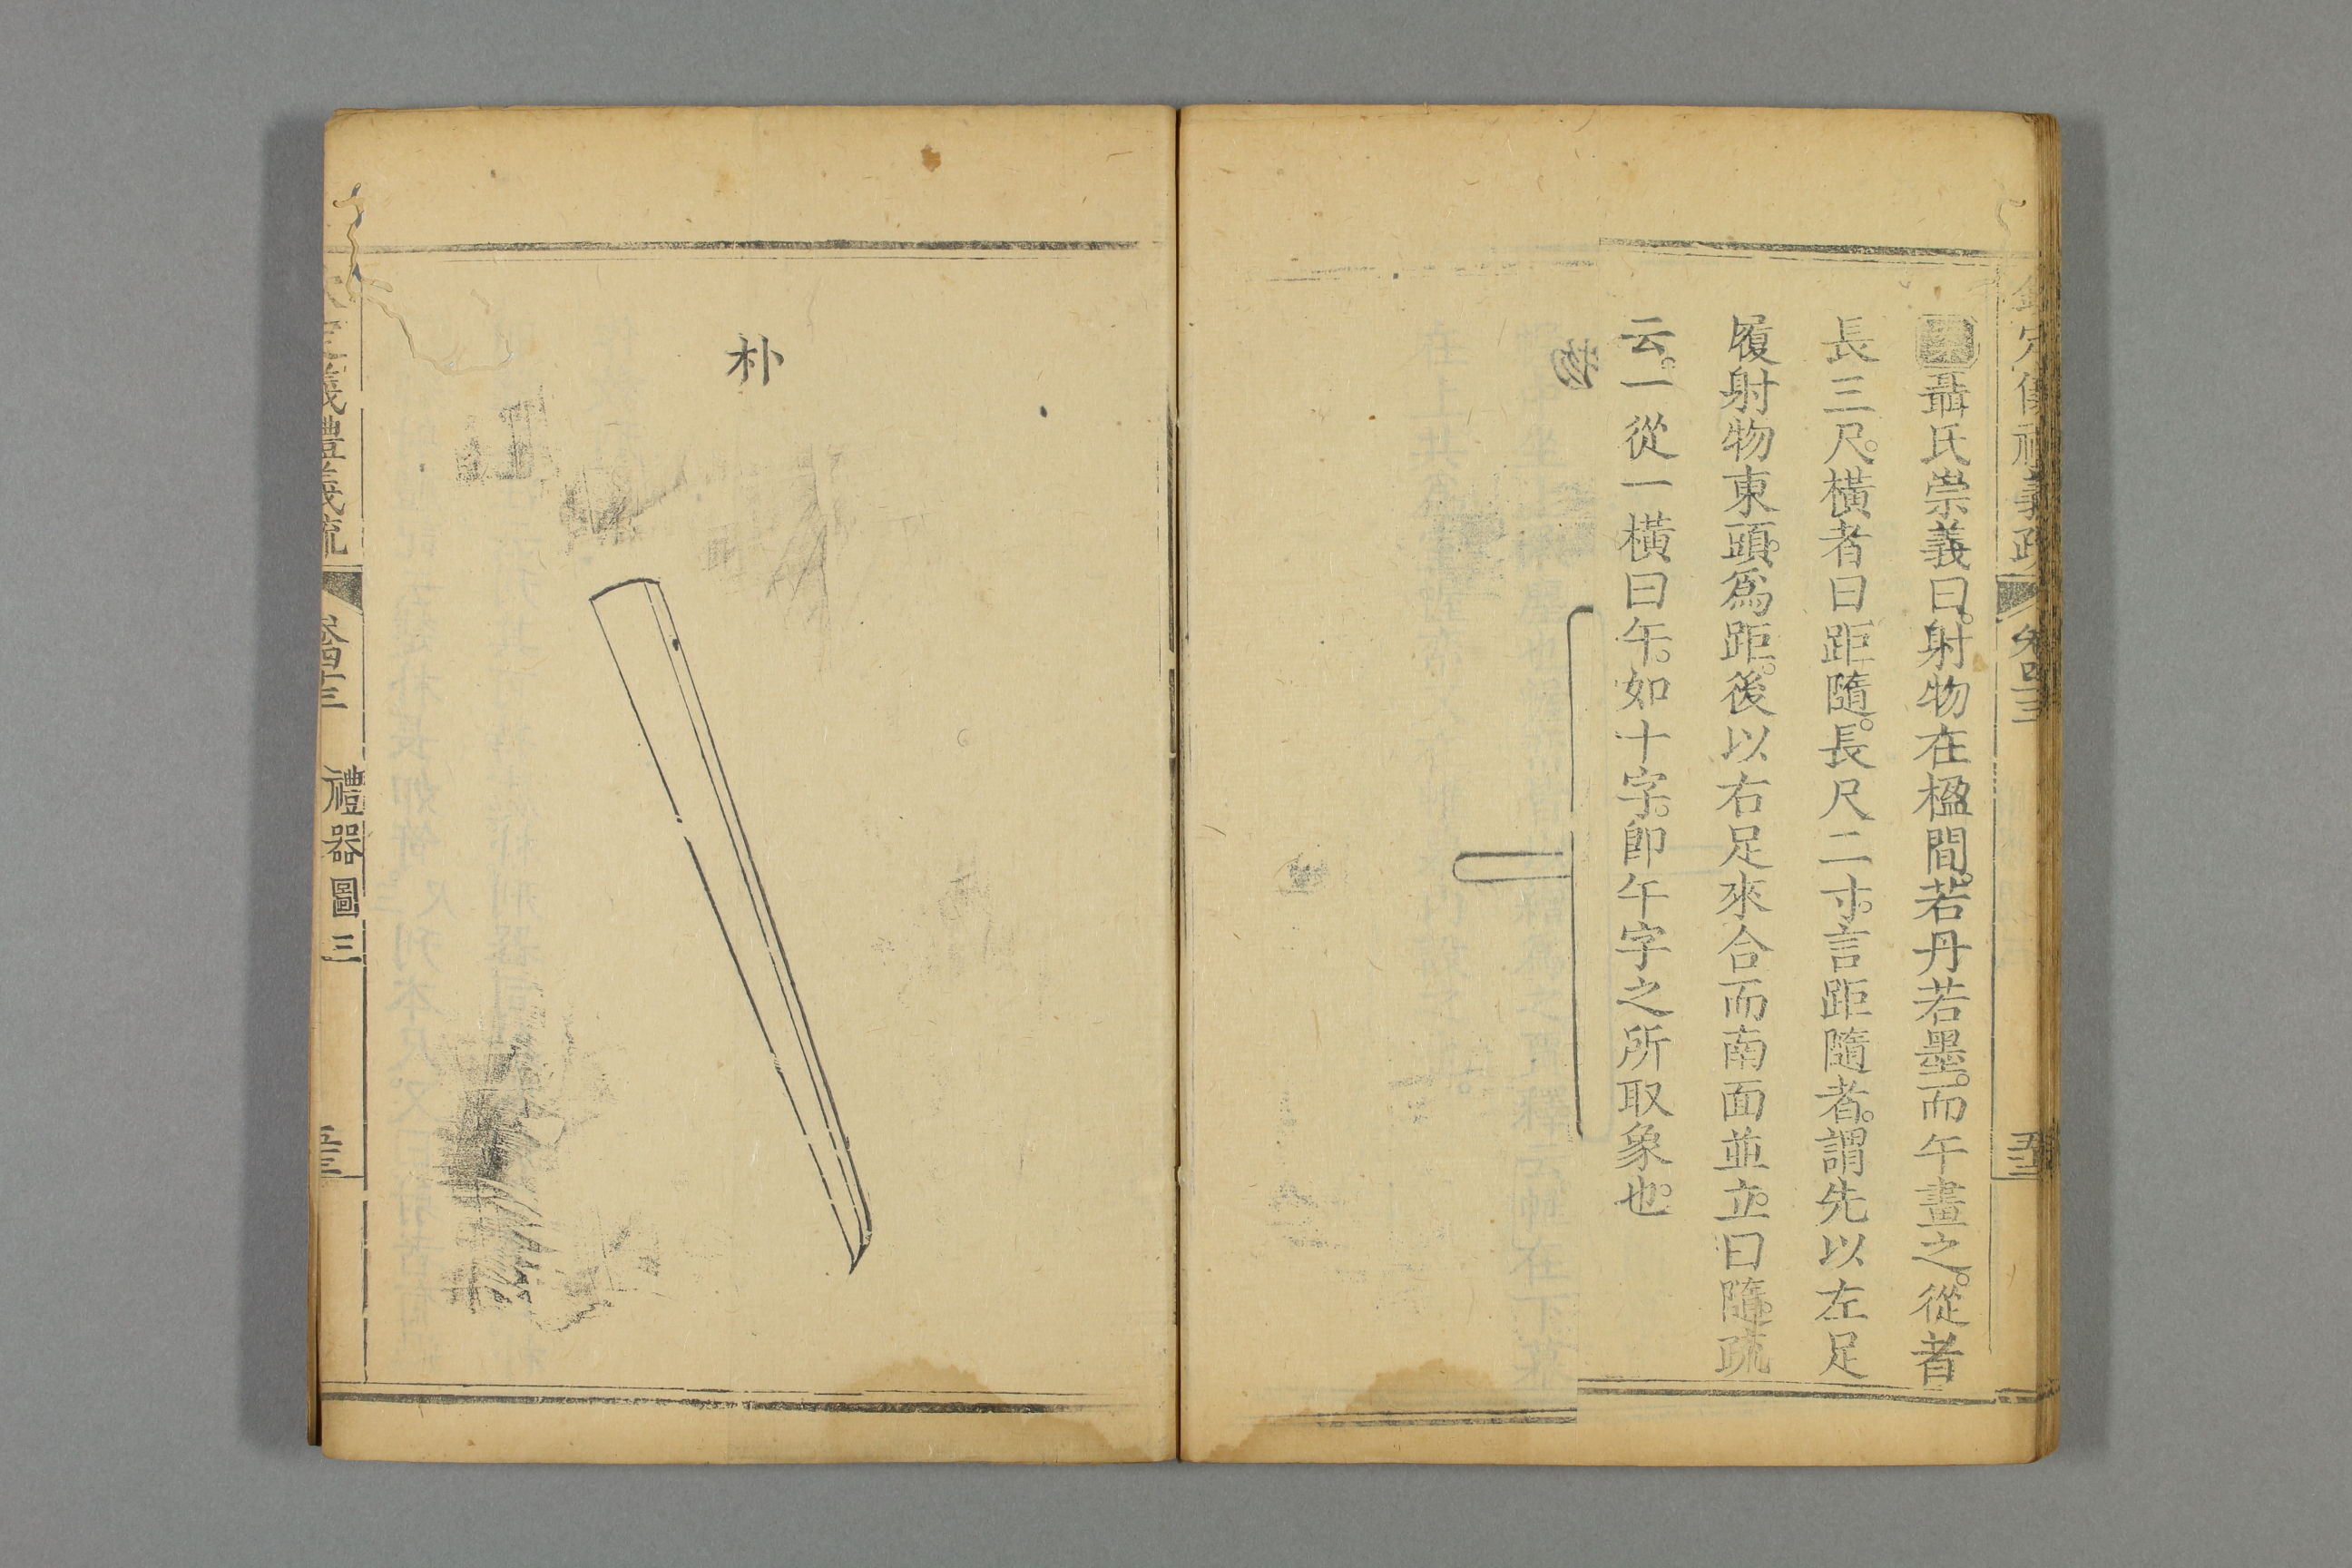 欽定儀禮義疏 卷四十三 五十二
聶氏崇義曰。射物在楹間。若丹若墨。而午畫之。從者
長三尺。橫者曰距隨。長尺二寸。言距隨者。謂先以左足
履射物東頭。爲距。後以右足來合而南面並立。曰隨。疏
云。一從一橫曰午。如十字。卽午字之所取象也。
物
朴
定儀禮義疏 卷四十三 禮器圖三 五十三